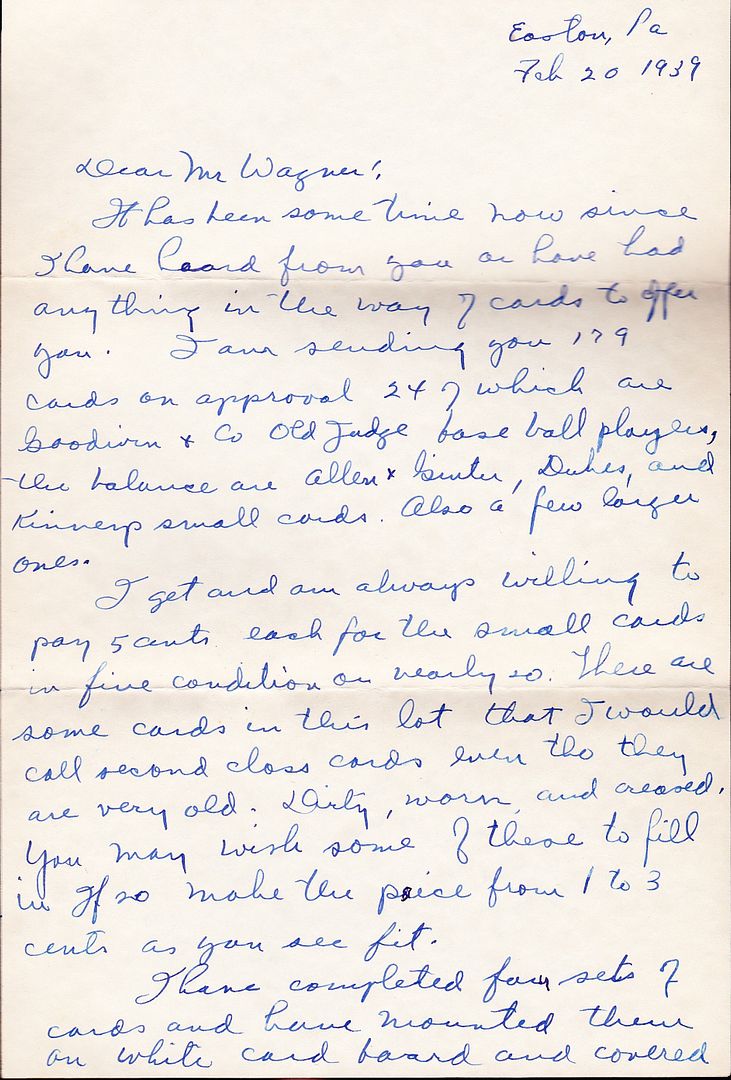 Easton, Pa
Feb 20 1939
Dear Mr Wagner:
It has been some time now since
I have heard from you or have had
any thing in the way of cards to offer
you. I am sending you 179
cards on approval 24 of which are
Goodwin & Co Old Judge base ball players,
the balance are Allen & Ginter, Dukes, and
Kinneys small cards. Also a few larger
ones.
I get and am always willing to
pay 5 cents each for the small cards
in fine condition or nearly so. There are
some cards in this lot that I would
call second class cards even tho they
are very old. Dirty, worn, and creased.
You may wish some of these to fill
in If so make the price from 1 to 3
cents as you see fit.
I have completed four sets of
cards and have mounted them
on white card board and covered